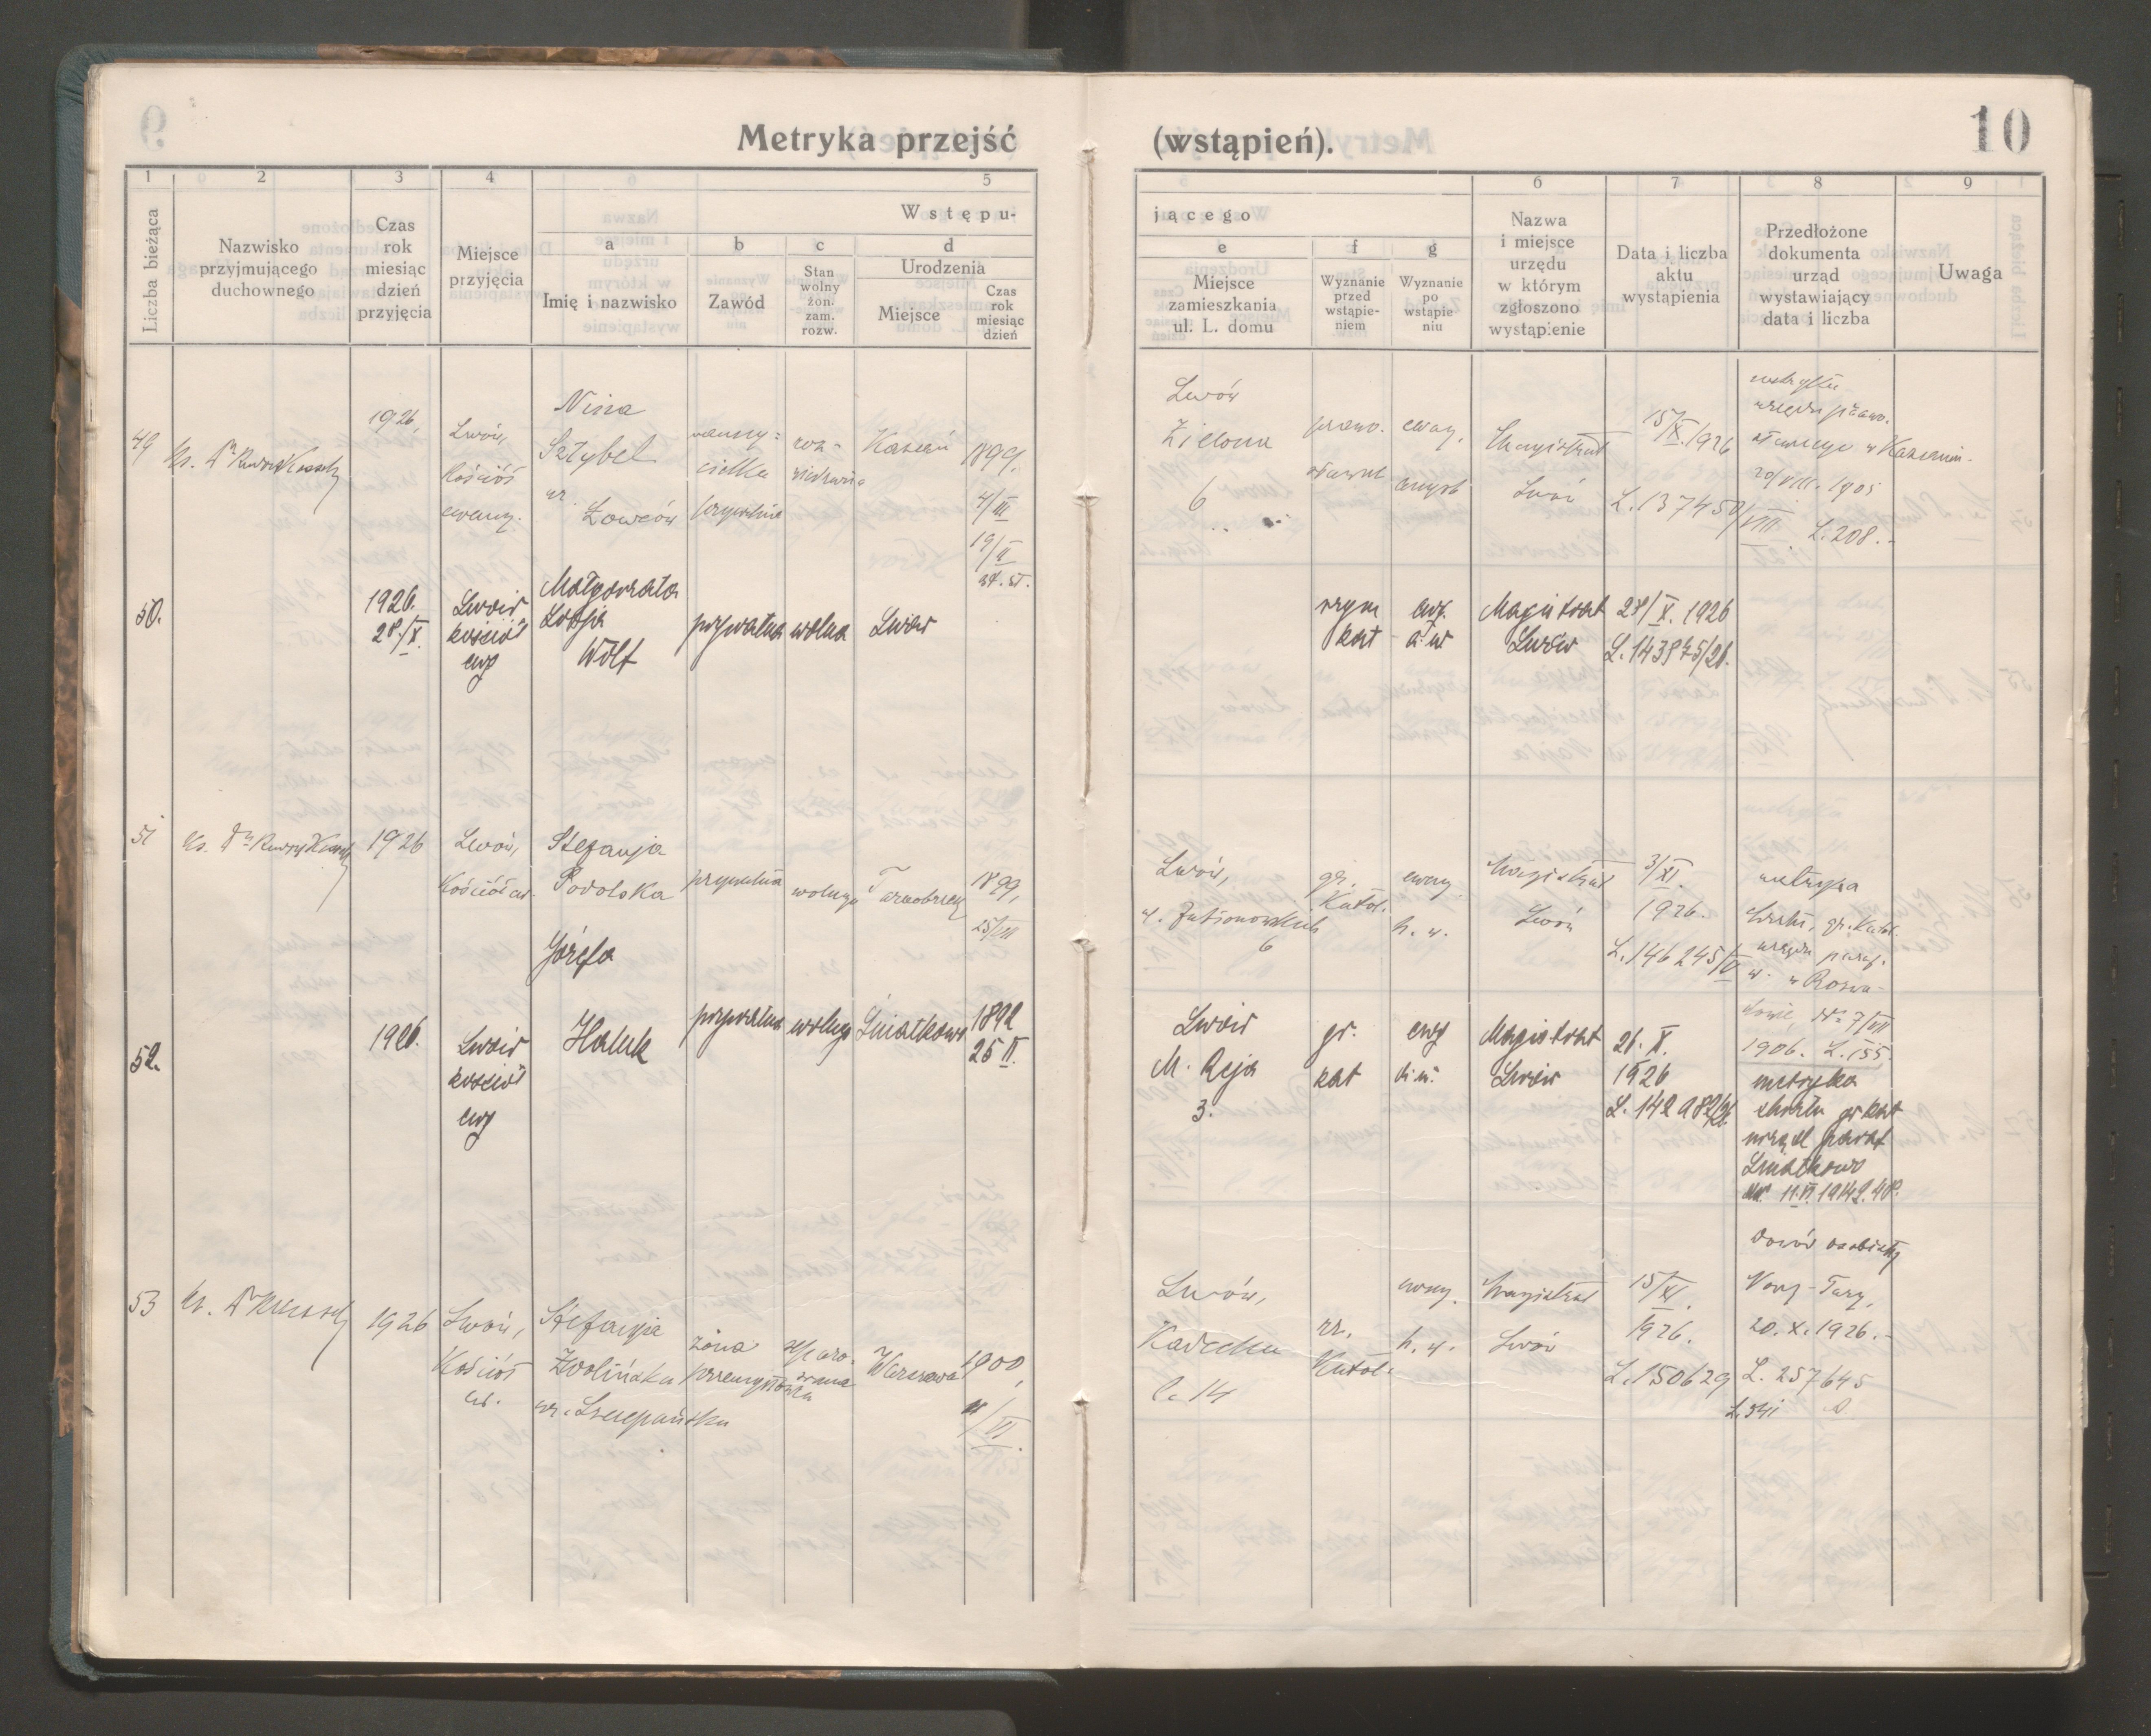 Metryka przejść (wstąpień).
10
1 2 3 4 5
Liczba bieżąca
Nazwisko
przyjmującego
duchownego
Czas
rok
miesiąc
dzień
przyjęcia
Miejsce
przyjęcia
Wstępu-
a
Imię i nazwisko
b
Zawód
c
Stan
wolny
żon.
zam.
rozw.
d
Urodzenia
Miejsce
Czas
rok
miesiąc
dzień
jącego
e
Miejsce
zamieszkania
ul. L. domu
f
Wyznanie
przed
wstąpie-
niem
g
Wyznanie
po
wstąpie
niu
6
Nazwa
i miejsce
urzędu
w którym
zgłoszono
wystąpienie
7
Data i liczba
aktu
wystąpienia
8
Przedłożone
dokumenta
urząd
wystawiający
data i liczba
9
Uwaga
49
Ks. Dr Kessel
1926,
Lwów,
Kościół
ewang.
Nina
Sztybel
ur. Łowców
nauczy=
cielka
prywatna
roz-
wiedziona
Kazań
1899.
4/III
19/II
st. st.
Lwów
Zielona
6
prawo.
sławne
ewang.
Magistrat
Lwów
15/X.1926
L.137450/VIII
metryka
urzędu prawo.
sławnego w Kazaniu.
20/VIII. 1905
L.208.-
50.
1926.
28./X.
Lwów
kościół
ewg
Małgorzata
Zofja
Wolf
prywatna
wolna
Lwów
rzym
kat
ewg.
a.w
Magistrat
Lwów
28/X. 1926
L.143875/26.
51
Ks. Dr Kessel
1926
Lwów,
Kościół ew.
Stefanja
Podolska
prywatna
wolnego
Tarnobrzeg
1899,
25/VII
Lwów,
6
gr.
Katol.
ewang.
h. w.
Magistrat
Lwów
3/XI.
1926.
L.146245/V
metryka
chrztu, gr. Katol.
urzędu paraf.
w Rozwa-
dowie, 7/VII
1906. L.155
52.
1926.
Lwów
kościół
ewg
Józefa
Haluk
prywatna
wolnego
Śniatkowo
1892
25 II.
Lwów
M. Reja
3.
gr.
kat
ewg
Magistrat
Lwów
26. X.
1926
L.142982/26.
metryka
chrztu gr kat
urząd paraf
11.VI.1914
53
Ks. Dr Kessel
1926
Lwów,
Kościół
ew.
Stefanja
Zwolińska
ur. Szczepańska
żona
przemysłowca
separo-
wana
Warszawa
1900,
/VI.
Lwów,
Kadecka
l. 14
rz.
Katol.
ewang.
h. w.
Magistrat
Lwów
15/XI.
1926.
L.150629
Dowód osobisty
Nowy-Targ,
20. X. 1926.-
L. 257645